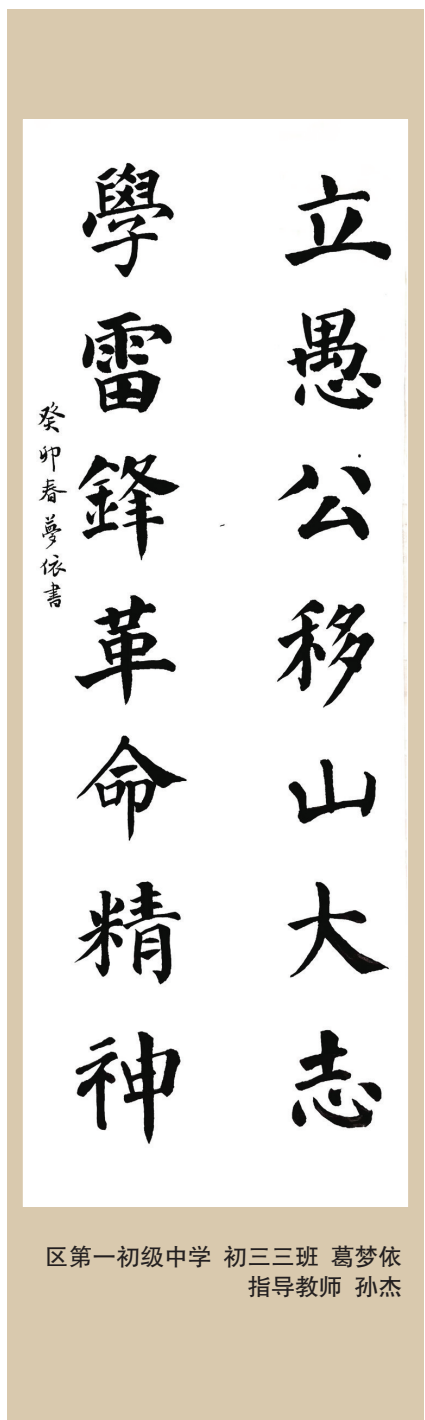 立愚公移山大志
學雷鋒革命精神
癸卯春夢依書
区第一初级中学 初三三班 葛梦依
指导教师 孙杰